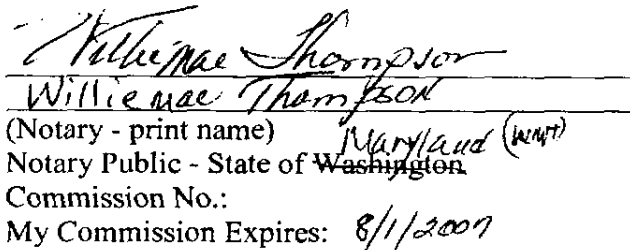 Williemae Thompson
Williemae Thompson
(Notary - print name)
Maryland (WMT)
Notary Public - State of Washington
Commission No.:
My Commission Expires: 8/1/2007